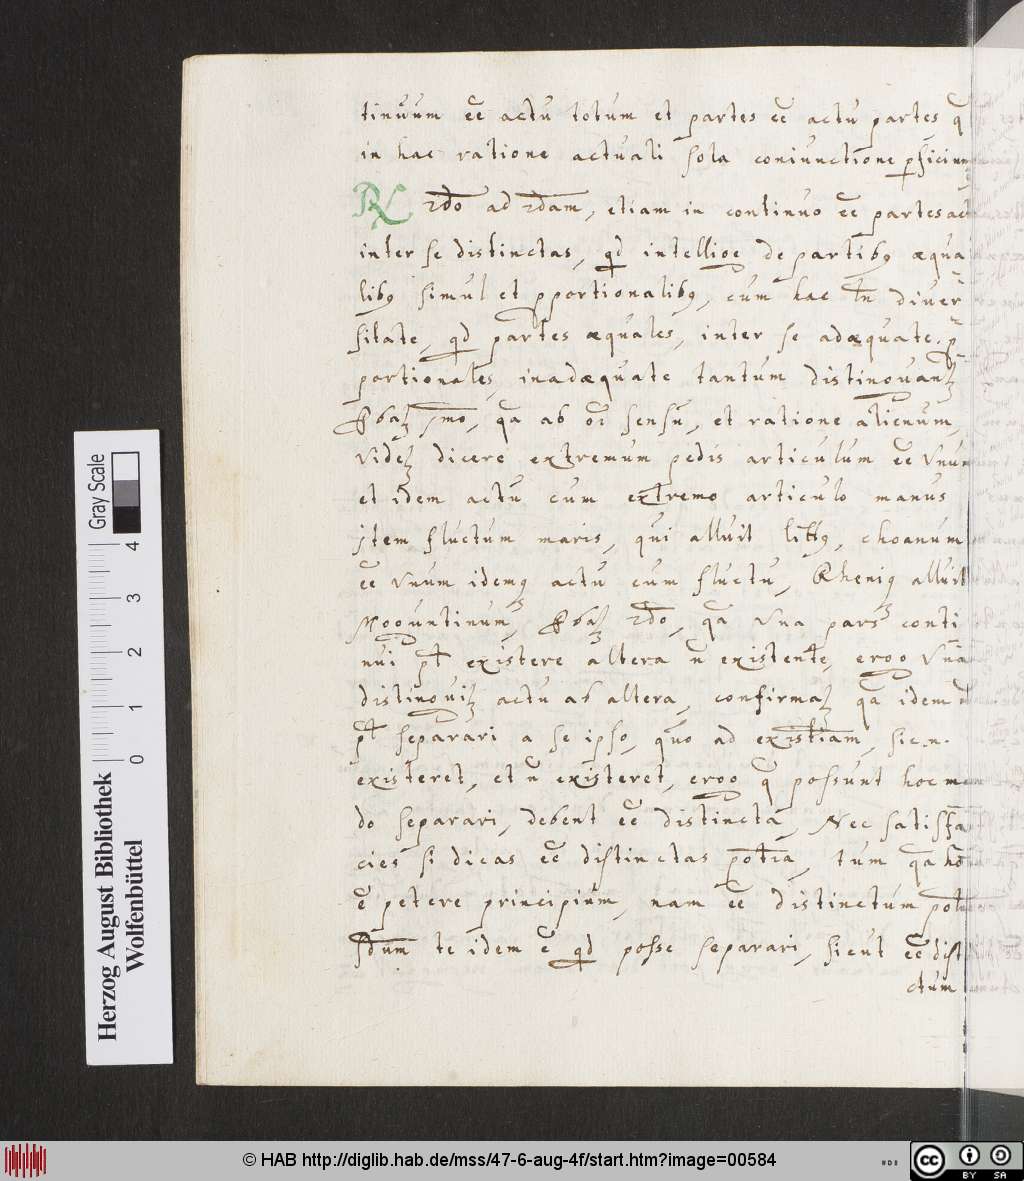 tinuum ee͂ actu totum et partes ee͂ actu partes q̃
in hac ratione actuali sola coniunctione
R 2do ad 2dam, etiam in continuo ee͂ partes act
inter se distinctas, qd intellige de partibq æqua
libq simul et pportionalibq, cum hac tn̄ diver
sitate, qd partes æquales, inter se adæquate. p
portionales, inadæquate tantum distinguant
Pbat 1mo, qa ab oi sensu, et ratione alienum,
videt dicere extremum pedis articulum ee͂ unum
et idem actu cum extremo articulo manus
Item fluctum maris, qui alluit littq, choanum
ee͂ unum idemq actu cum fluctu, Rheniq alluit
Moguntinum, Pbat 2do, qa una pars conti
nui pt existere altera n̄ existente, ergo una
distinguit actu ab altera, confirmat qa idem n̄
pt separari a se ipso, quo ad existiam, sic.n.
existeret, et n̄ existeret, ergo q̃ possunt hoc mo
do separari, debent ee͂ distincta, Nec satisfa
cies si dicas ee͂ distinctas potra, tum qa hō
ē petere principium, nam ee͂ distinctum pot
sdum te idem ē qd posse separari, sicut ee͂ dist
ctum
Gray Scale
0 1 2 3 4
Herzog August Bibliothek
Wolfenbüttel
© HAB http://diglib.hab.de/mss/47-6-aug-4f/start.htm?image=00584
cc BY SA